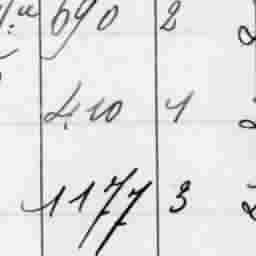 690 2
410 1
1177 3